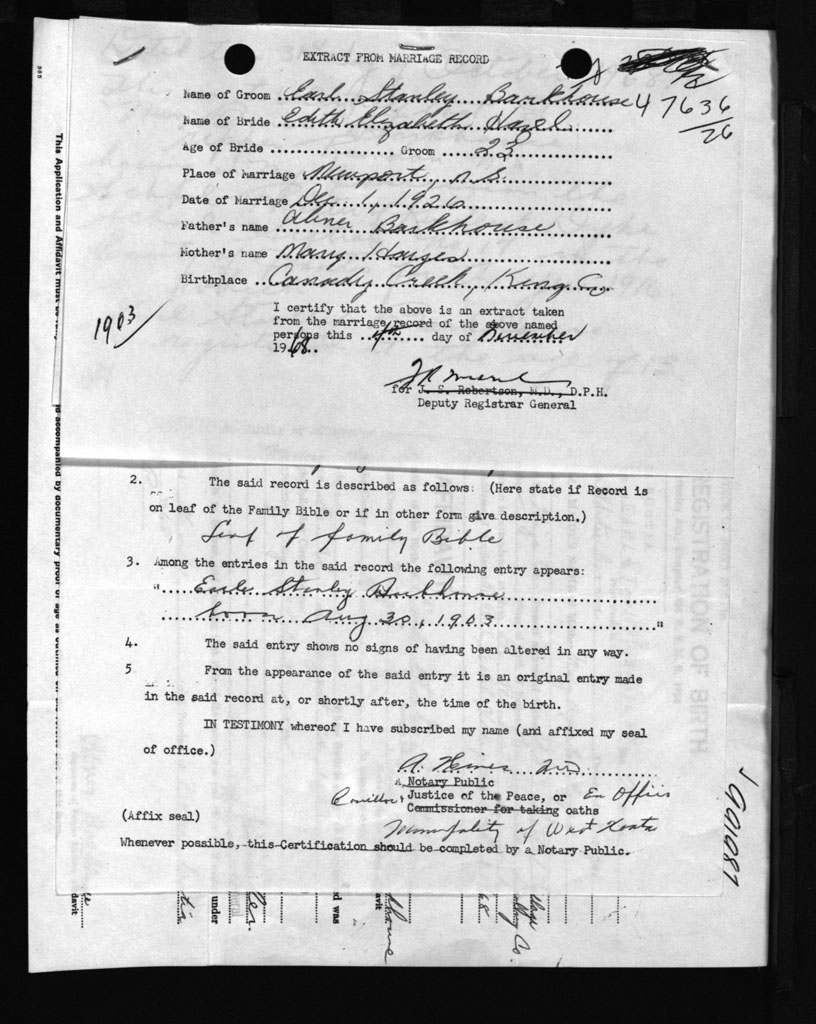 EXTRACT FROM MARRIAGE RECORD
Name of Groom Earl Stanley Barkhouse
47636
26
Name of Bride Edith Elizabeth
Age of Bride Groom 23
Place of Marriage Newport, N.S.
Date of Marriage Dec 1, 1926
Father's name Abner Barkhouse
Mother's name Mary
Birthplace Canady Creek, Kings Co
1903
I certify that the above is an extract taken
from the marriage record of the above named
persons this 4th day of November
1968
for J. S. Robertson, M.D., D.P.H.
Deputy Registrar General
This Application and Affidavit must be
accompanied by documentary proof of age as outlined on the reverse
2. The said record is described as follows: (Here state if Record is
on leaf of the Family Bible or if in other form give description.)
Leaf of family Bible
3. Among the entries in the said record the following entry appears:
" Earle Stanley Barkhouse
born Aug 30, 1903 "
4. The said entry shows no signs of having been altered in any way.
5 From the appearance of the said entry it is an original entry made
in the said record at, or shortly after, the time of the birth.
IN TESTIMONY whereof I have subscribed my name (and affixed my seal
of office.)
A Notary Public
Councillor, Justice of the Peace, or Ex Officio
Commissioner for taking oaths
(Affix seal)
Municipality of West Hants
Whenever possible, this Certification should be completed by a Notary Public.
901087
REGISTRATION OF BIRTH
davit
under
d was
68
Co.